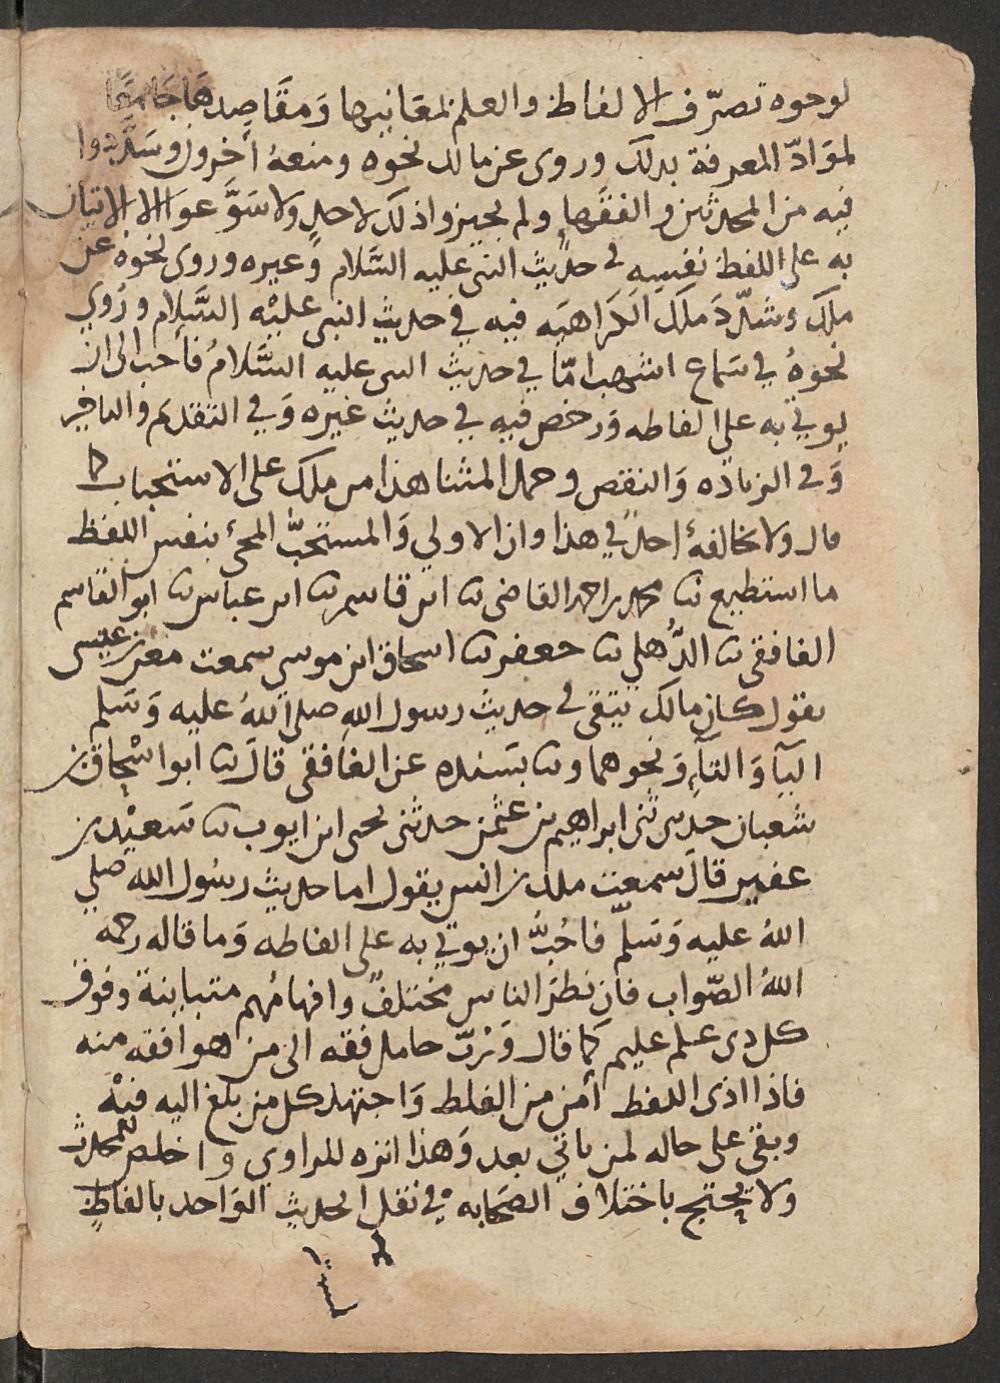 لوجوه تصرّف الالفاظ والعلم لمعَانيها وَمقَاصِدهَا جَامعًا
لموَادّ المعرفة بدلك وروى عن مالك نحوه ومنعهُ أخرون وشَدَّدوا
فيه من المحدثين والفقَها ولم يجيزوا ذلك لاحدٍ ولا سَوَّغوا الا الاتيان
به على اللفظ نفسِه في حدِيث النبى عليه السَّلام وغيره وروى نحوهُ عن
ملك وشدّدَ ملك الكَراهيَه فيه في حديث النبى عليْه السَّلام ورُوي
نحوهُ في سَماع اشهب امّا في حديث النبى عليه السَّلامُ فأحب الى ان
يوتي به على الفاظه وَرخص فيه في حديث غيره وَفي التقديم والتاخير
وَفى الزياده وَالنقص وحمل ائمتنا هذا من ملك على الاستحباب كما
قال ولا يخالفهُ احدٌ في هذا وان الاولي وَالمستحَبّ المجئ بنفس اللفظ
ما استطيع نا محمد بن احمد القاضى نا ابن قاسم نا ابن عباس نا ابو القاسم
الغافقى نا الذُّهلي نا جعفر نا اسحاق ابن موسى سمعت معن بن عيسى
يقول كان مالك يتقى في حديث رسول الله صلى اللهُ عليه وَسَلم
اليآ وَالتآ، وَنحوهما ونا بسَنده عن الغافقى قالَ نا ابو اسْحاق بن
شعبان حدثنى ابراهيم بن عثمن حدثنى يحيى ابن ايوب نا سَعيْد بن
عفير قالَ سمعت ملك بن انس يقول اما حديث رسُول الله صلي
اللهُ عليه وَسَلَّم فاحُبُّ ان يوتي به على الفاظه وَما قاله رحمه
اللهُ الصَّواب فان نظرَ الناس مختلفٌ وافهامُهم متباينة وفوق
كل ذى علم عليم كما قال وَرُبّ حامل فقه الى من هو افقه منه
فاذا ادى اللفظ أمن من الغلط وَاجتهد كل من بلغ اليه فيْه
وبقى على حاله لمن ياتي بعد وَهذا انزه للراوي وَاخلص للمحدث
ولا يحتج باختلاف الصَحابه في نقل الحديث الوَاحد بالفاظٍ